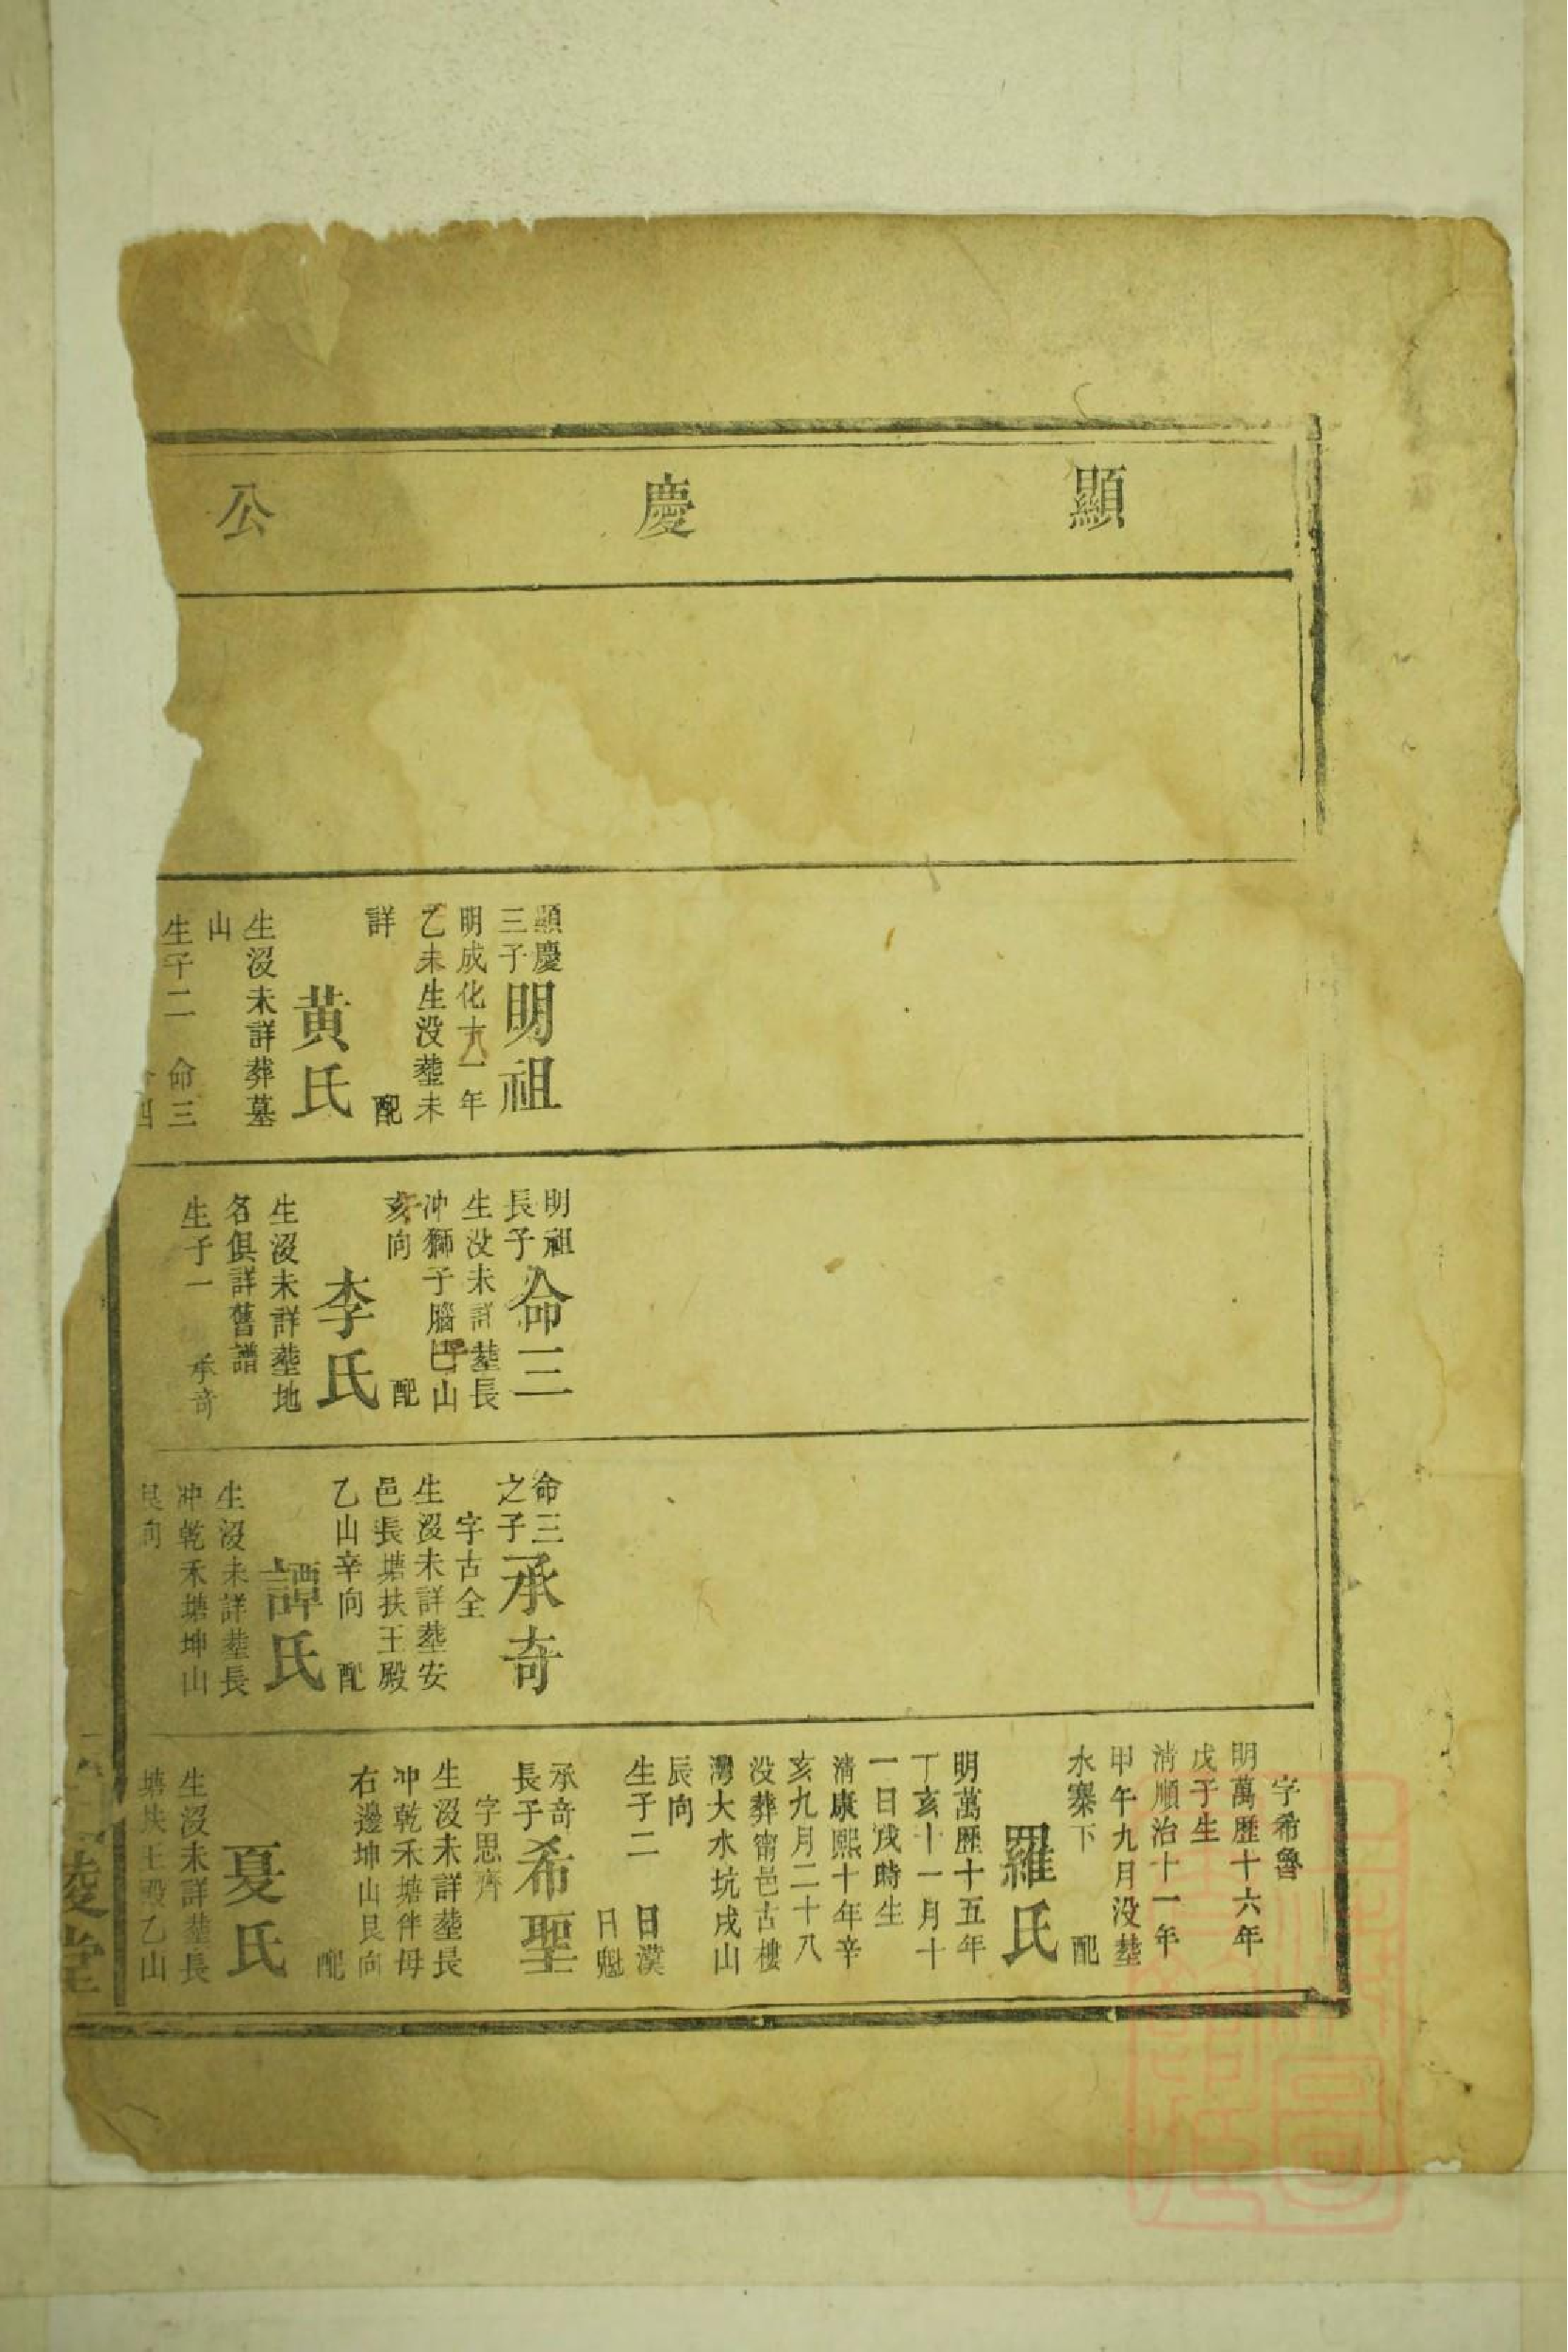 顯慶公
顯慶
三子
明祖
明成化十一年
乙未生没塟未
詳
配
黄氏
生没未詳葬墓
山
生子二
命三
明祖
長子
命三
生没未詳塟長
冲獅子腦巳山
亥向
配
李氏
生没未詳塟地
名俱詳舊譜
生子一
承奇
命三
之子
承奇
字古全
生没未詳塟安
邑長塘扶王殿
乙山辛向
配
譚氏
生没未詳塟長
冲乾禾塘坤山
艮向
字希魯
明萬歷十六年
戊子生
清順治十一年
甲午九月没塟
水寨下
配
羅氏
明萬歷十五年
丁亥十一月十
一日戌時生
清康熙十年辛
亥九月二十八
没葬甯邑古樓
灣大水坑戌山
辰向
生子二
日漢
日魁
承奇
長子
希聖
字思齊
生没未詳塟長
冲乾禾塘伴母
右邊坤山艮向
配
夏氏
生没未詳塟長
塘扶王殿乙山
陵堂